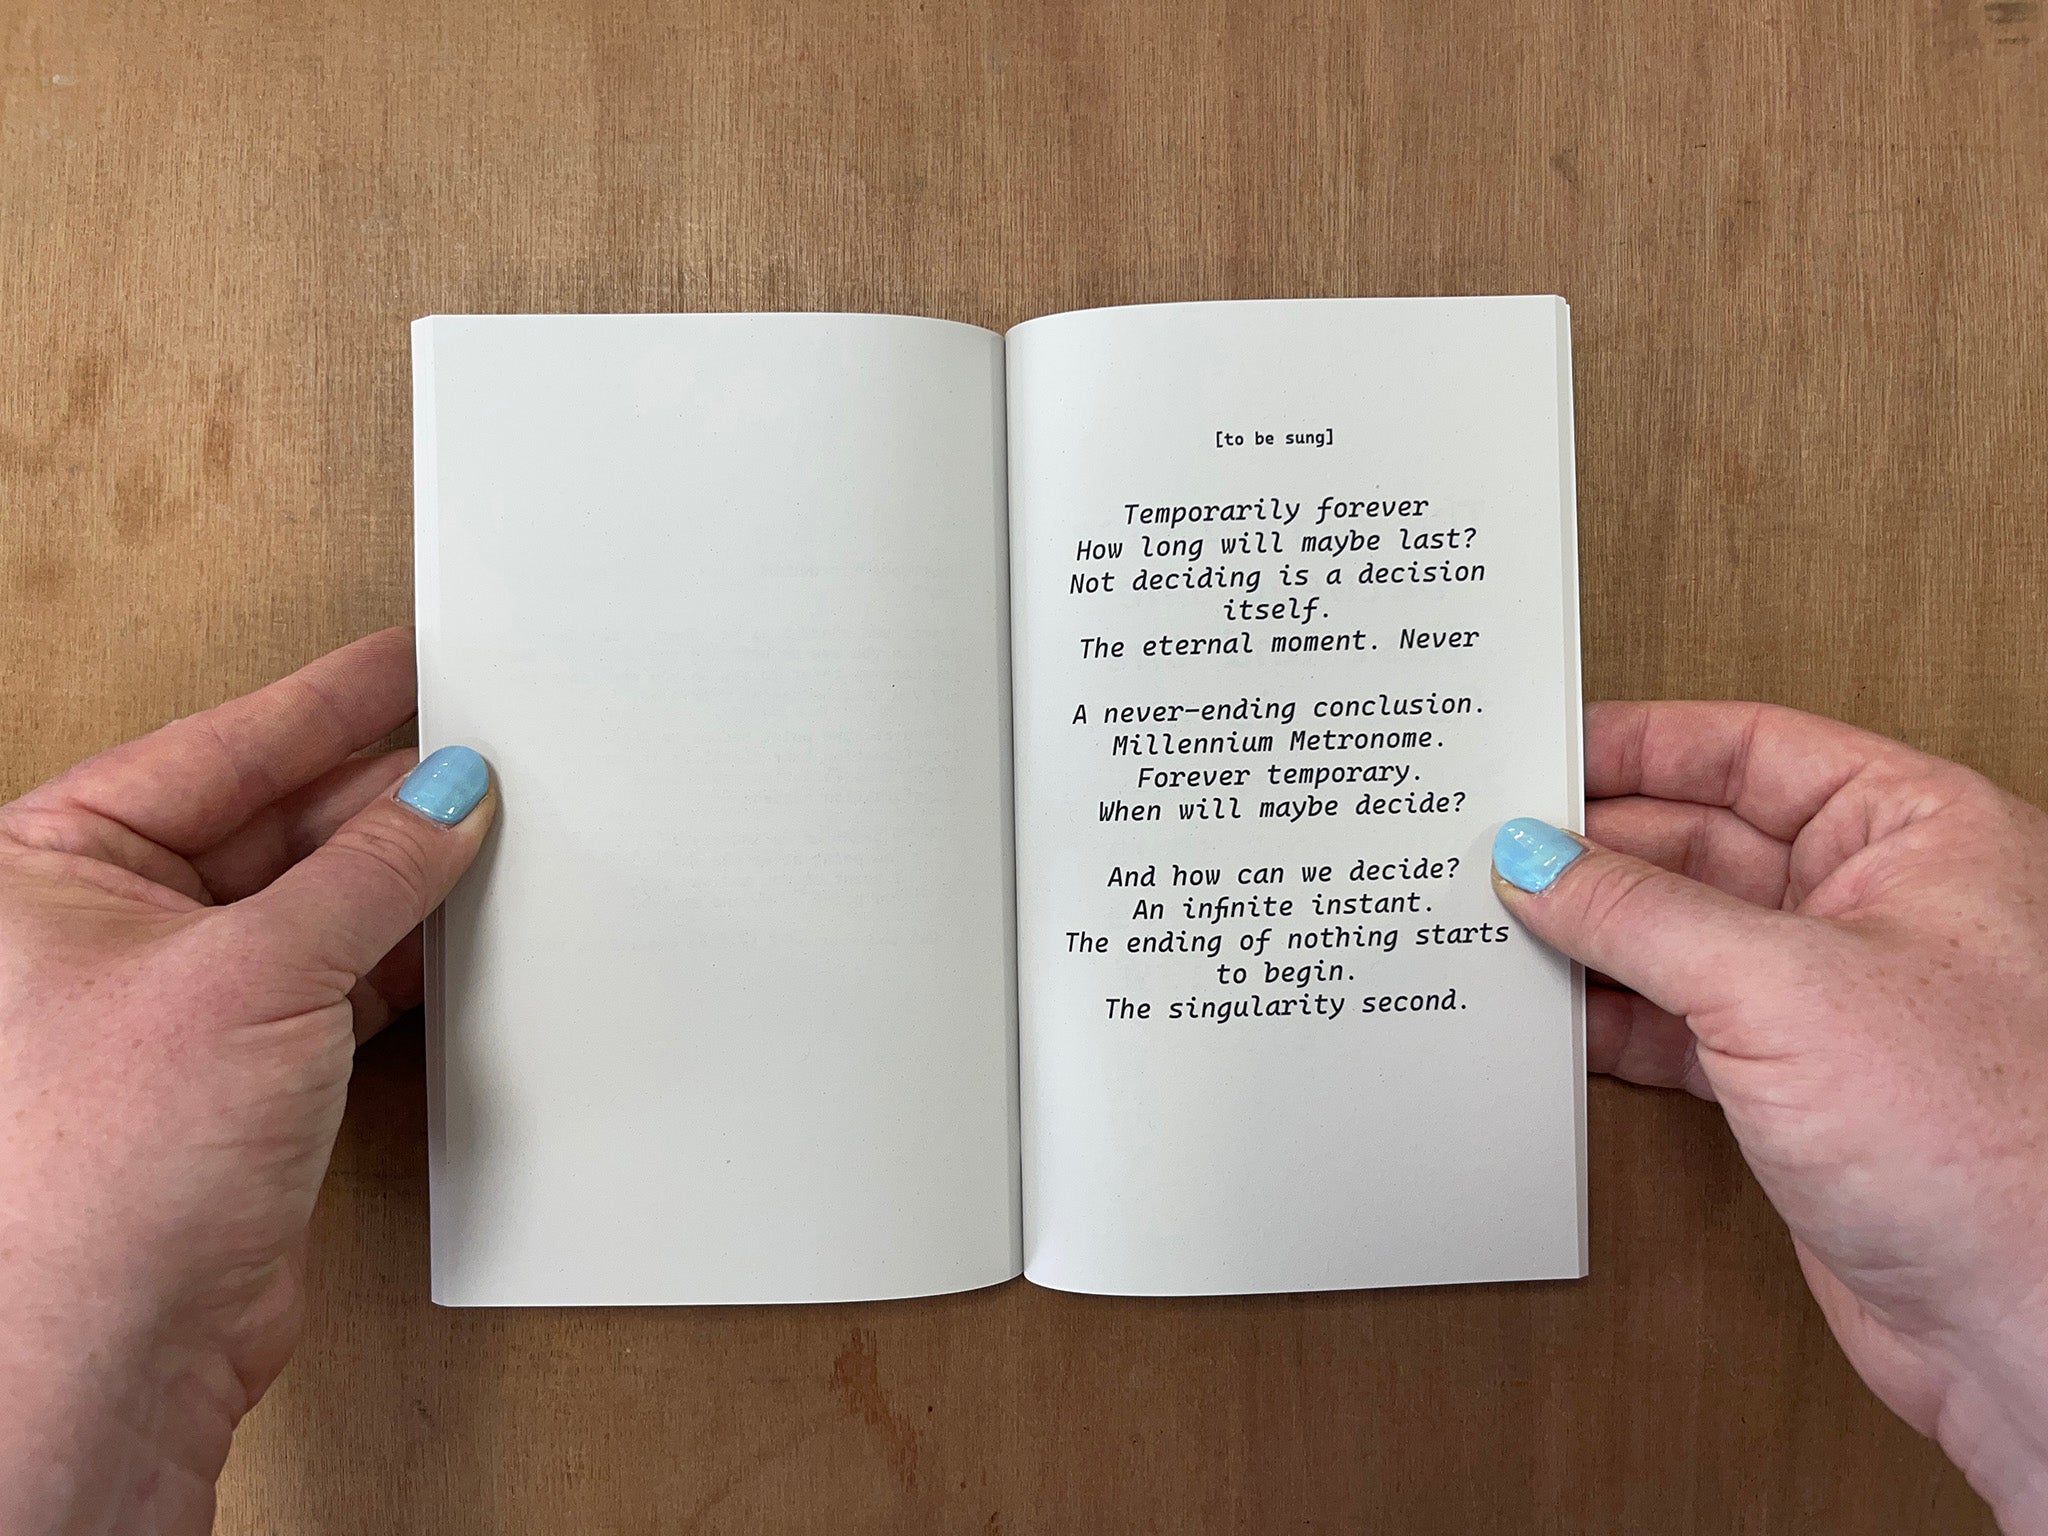 [to be sung]
Temporarily forever
How long will maybe last?
Not deciding is a decision
itself.
The eternal moment. Never
A never—ending conclusion.
Millennium Metronome.
Forever temporary.
When will maybe decide?
And how can we decide?
An infinite instant.
The ending of nothing starts
to begin.
The singularity second.